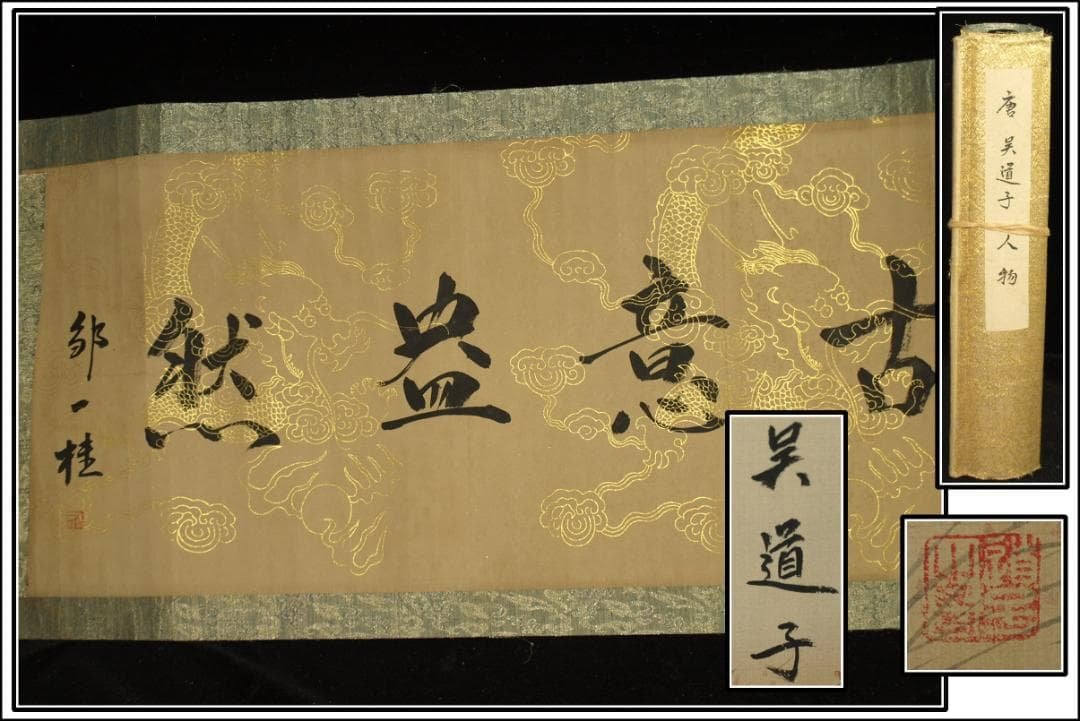 古意盎然
邹一桂
唐 吴道子 人物
吴道子